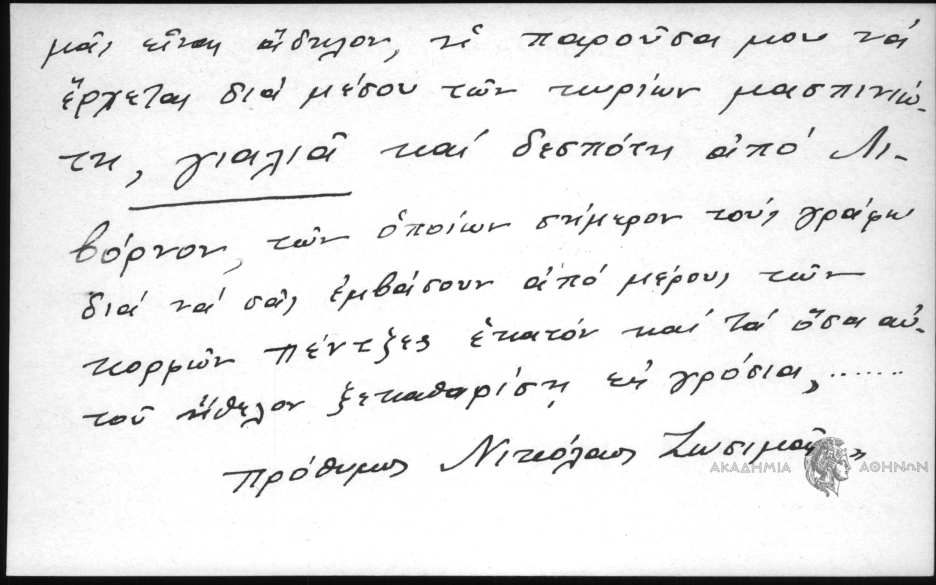 μᾶς εἶναι ἄδηλον, ἡ παροῦσα μου νά
ἔρχεται διά μέσου τῶν κυρίων μασπινιώ-
τη, γιαλιᾶ καί δεσπότη ἀπό Λι-
βόρνον, τῶν ὁποίων σήμερον τούς γράφω
διά νά σᾶς ἐμβάσουν ἀπό μέρους τῶν
κορμῶν πέντζες ἑκατόν καί τά ὅσα αὐ-
τοῦ ἤθελον ξεκαθαρίση εἰς γρόσια, ......
πρόθυμος Νικόλαος Ζωσιμᾶς»
ΑΚΑΔΗΜΙΑ ΑΘΗΝΩΝ